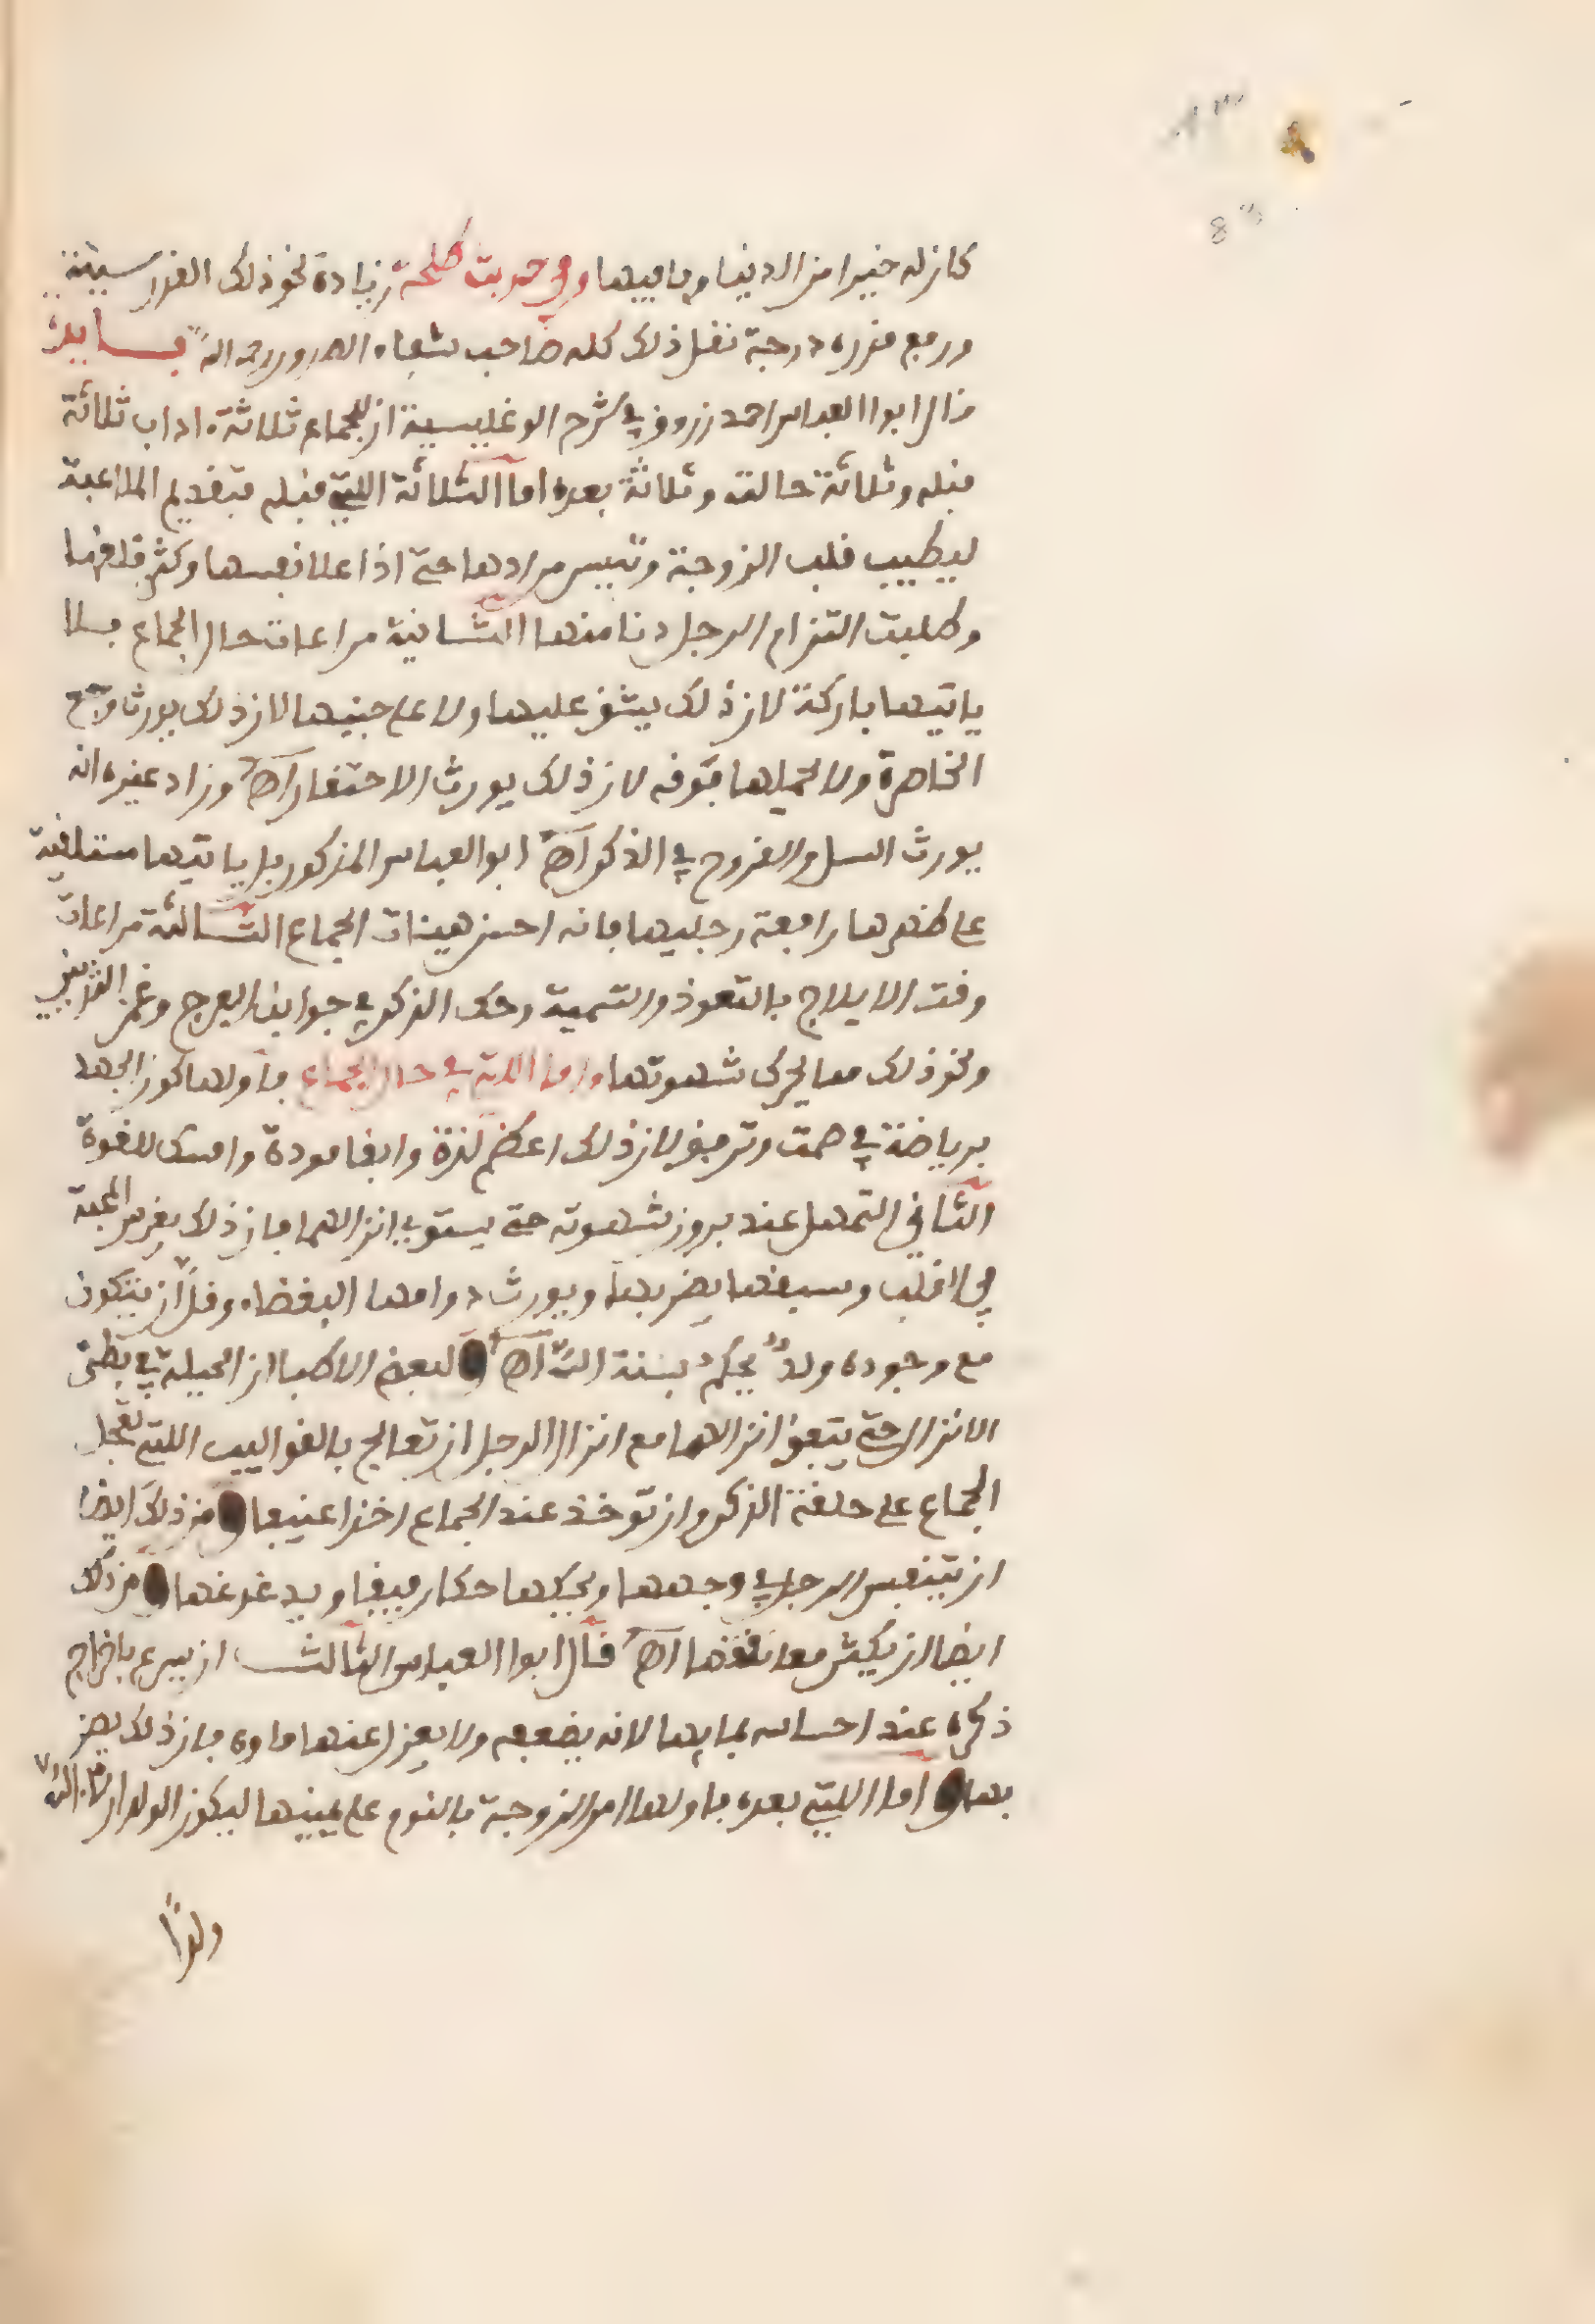 كان له خيرا من الدنيا وما فيها وفي حديث طلحة زيادة نحو ذلك الفدر سيئة
ورفع فدره درجة نفل ذلك كله صاحب شفاء الصدور رحمه الله فايدة
فال ابوا العباس احمد زروف في شرح الوغليسية ان للجماع ثلاثة اداب ثلاثة
فبله وثلاثة حالته وثلاثة بعده اما الثلاثة اللتي فبله فتفديم الملاعبة
ليطيب فلب الزوجة وتيسر مرادها حتى اذا علا نفسها وكثر فلفها
وطلبت التزام الرجل دنا منها الثانية مراعات حال الجماع فلا
ياتيها باركة لان ذلك يشف عليها ولا على جنبها لان ذلك يورث وجع
الخاصرة ولا يحملها فوفه لان ذلك يورث الاحتفار اهـ وزاد غيره انه
يورث السل والفروح في الذكر اهـ ابو العباس المذكور بل ياتيها مستلفية
على ظهرها رافعة رجليها فانه احسن هيئات الجماع الثالثة مراعات
وفت الايلاج بالتعوذ والتسمية وحك الذكر في جوانب الفرج وغمز الثديين
ونحو ذلك مما يحرك شهوتها واما اللتي في حال الجماع فاولها كون الجهد
برياضة في صمت وترفيف لان ذلك اعظم لذة وابفا مودة وامسك للفوة
الثاني التمهل عند بروز شهوته حتى يستوي انزالهما فان ذلك يغرس المحبة
في الفلب وسبفها يضر بها ويورث دوامها البغضاء وفل ان يتكون
مع وجوده ولد بحكم سنة الله اهـ ولبعض الاطبا ان الحيلة في بطئ
الانزال حتى يتفف انزالهما مع انزال الرجل ان تعالج بالفواليب اللتي تعجل
الجماع على حلفة الذكر وان توخذ عند الجماع اخذا عنيفا ومن ذلك ايضا
ان يتنفس الرجل في وجهها ويحكها حكا رفيفا ويدغدغها ومن ذلك
ايضا ان يكثر معانفتها اهـ فال ابوا العباس الثالث ان يسرع باخراج
ذكره عند احساسه بمايها لانه يضعفه ولا يعزل عنها ماءه فان ذلك يضر
بها واما اللتي بعده فاولها امر الزوجة بالنوم على يمينها ليكون الولد ان شاء الله
ولدا